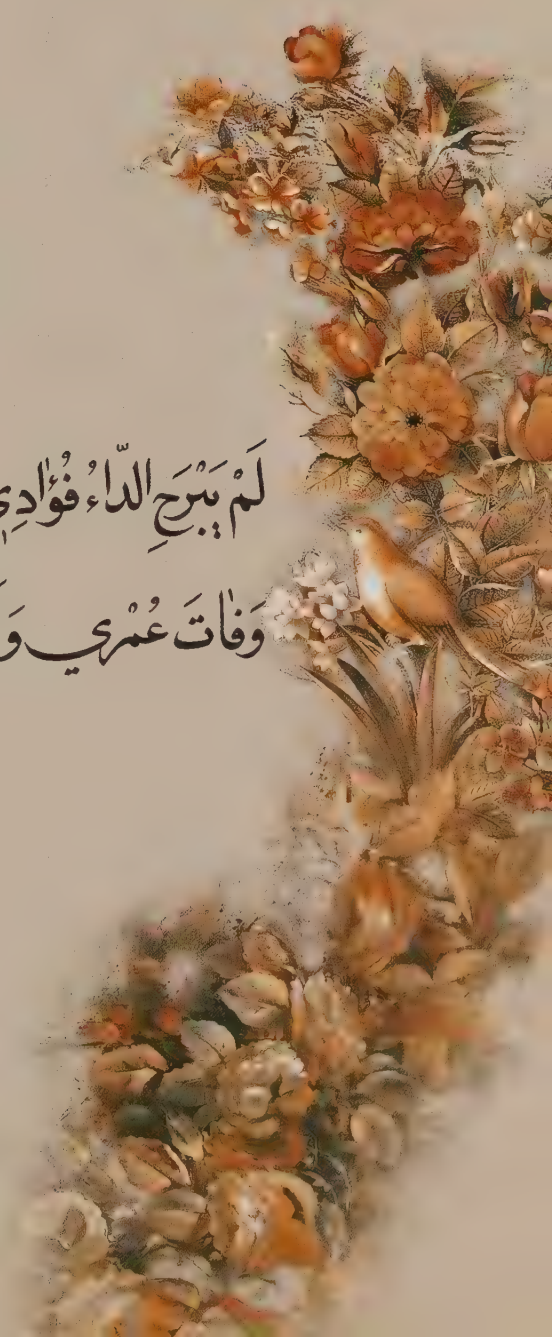 لَمْ يَبْرَحِ الدّاءُ فُؤٰادِي
وَفٰاتَ عُمْرِي